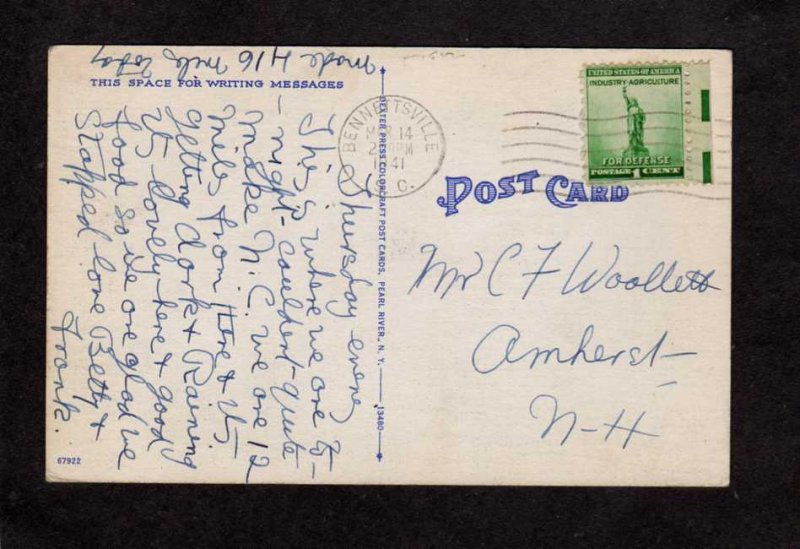 THIS SPACE FOR WRITING MESSAGES
Thursday eveng
This is where we are to-
-night- couldent-quite
make N.C. we are 12
miles from Here + its
getting dark + Raining
its lovely here + good
food so we are glad we
Stopped love Betty +
Frank.
made 416 miles today
67922
DEXTER PRESS COLORCRAFT POST CARDS, PEARL RIVER, N. Y. — 13480
BENNETTSVILLE
14
PM
1941
S. C.
UNITED STATES OF AMERICA
INDUSTRY-AGRICULTURE
FOR DEFENSE
POSTAGE 1 CENT
POST CARD
Mr C F Woollett
Amherst
N-H